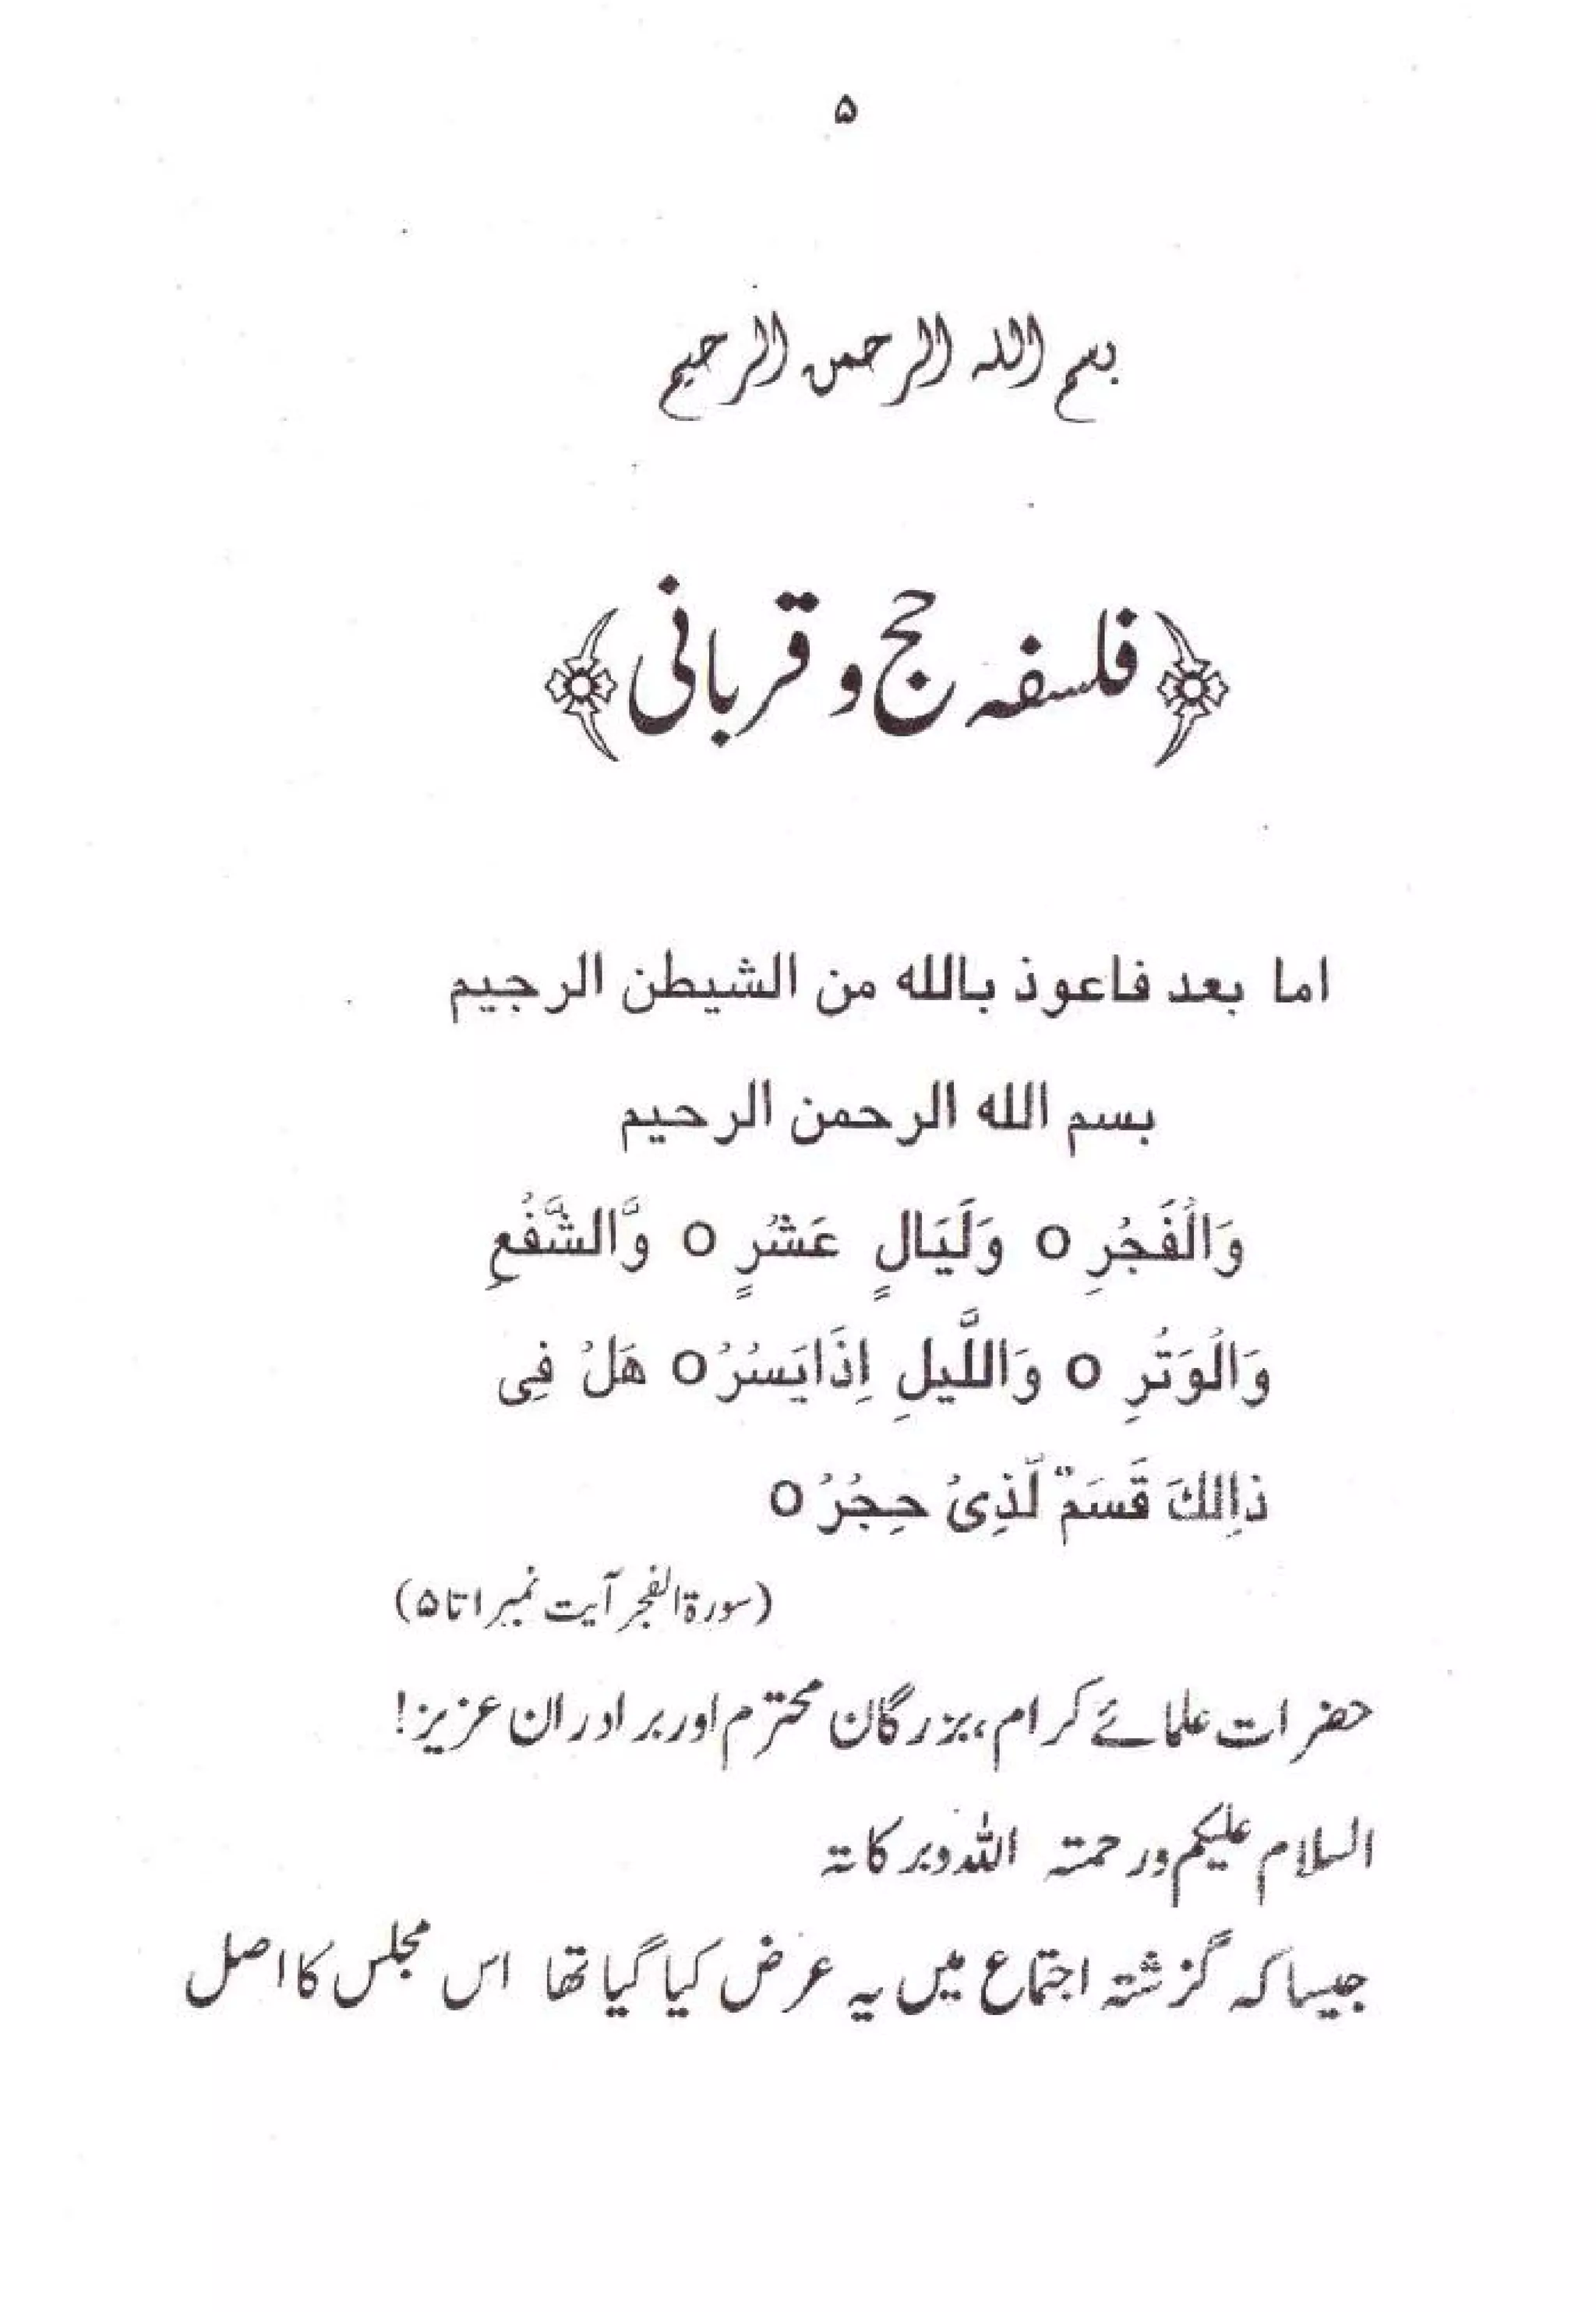 ۵
بسم اللہ الرحمن الرحیم
﴿فلسفہ حج و قربانی﴾
اما بعد فاعوذ بالله من الشيطن الرجيم
بسم الله الرحمن الرحيم
وَالْفَجْرِ o وَلَيَالٍ عَشْرٍ o وَّالشَّفْعِ
وَالْوَتْرِ o وَاللَّيلِ اِذَايَسْرُ o هَلْ فِی
ذَالِكَ قَسَمٌ لِّذِیْ حِجْرُ o
(سورۃ الفجر آیت نمبر ۱ تا ۵)
حضرات علمائے کرام، بزرگان محترم اور برادران عزیز!
السلام علیکم ورحمتہ اللہ وبرکاتہ
جیسا کہ گزشتہ اجتماع میں یہ عرض کیا گیا تھا اس مجلس کا اصل